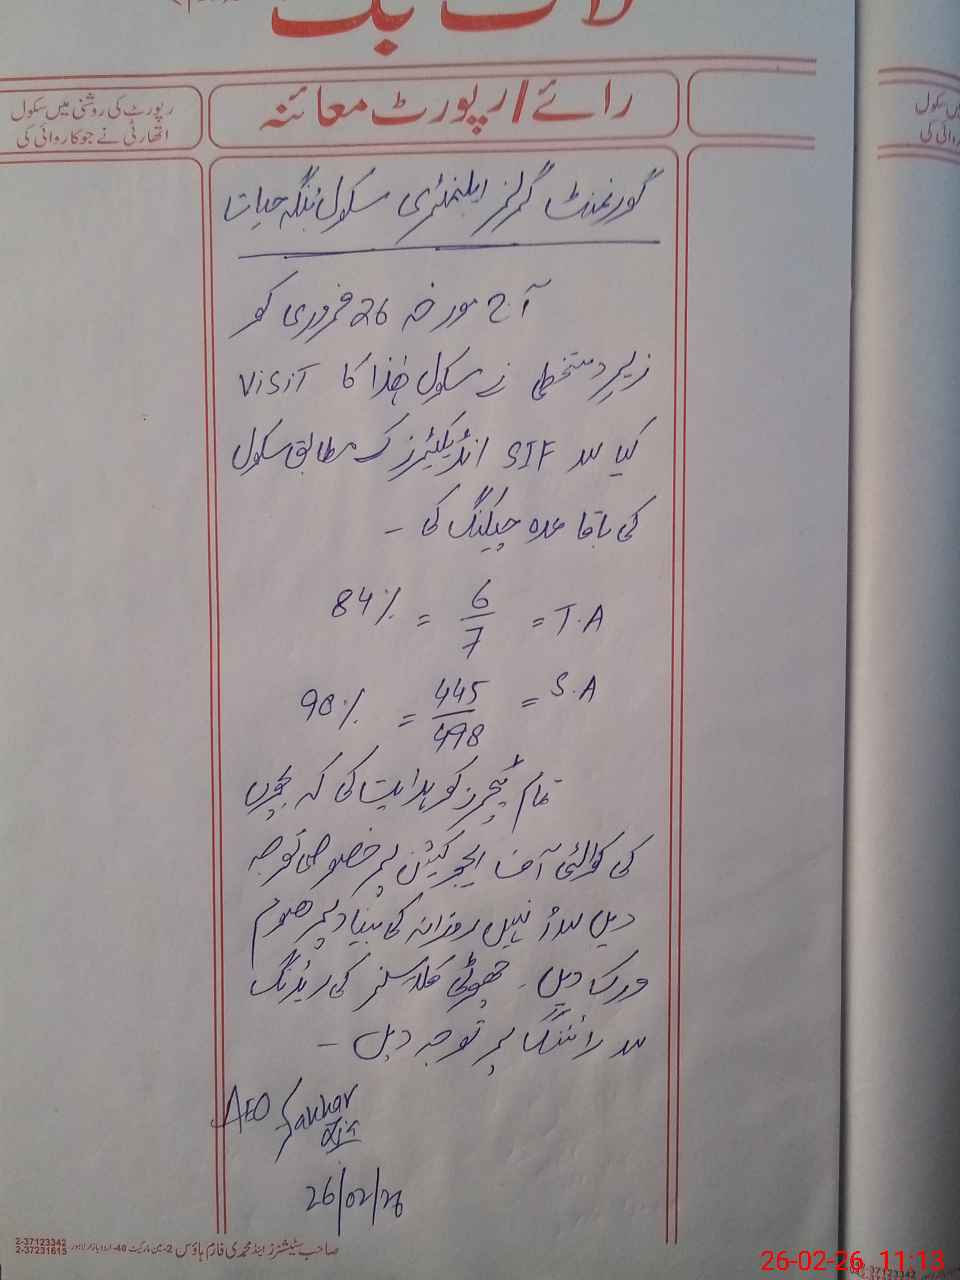 لاگ بک
رائے/رپورٹ معائنہ
رپورٹ کی روشنی میں سکول
اتھارٹی نے جو کاروائی کی
گورنمنٹ گرلز ایلیمنٹری سکول بنگلہ حیات
آج مورخہ 26 فروری کو
زیر دستخطی نے سکول ھٰذا کا Visit
کیا اور SIF انڈیکیٹرز کے مطابق سکول
کی باقاعدہ چیکنگ کی ۔
T.A = 6/7 = 84%
S.A = 445/498 = 90%
تمام ٹیچرز کو ہدایت کی کہ بچوں
کی کوالٹی آف ایجوکیشن پر خصوصی توجہ
دیں اور انہیں روزانہ کی بنیاد پر ھوم
ورک دیں ۔ چھوٹی کلاسز کی ریڈنگ
اور رائٹنگ پر توجہ دیں ۔
AEO
26/02/26
صاحب سٹیشنرز اینڈ محمدی فارم ہاؤس 2-مین مارکیٹ 40-اردو بازار لاہور
2-37123342
2-37231615
26-02-26 11:13